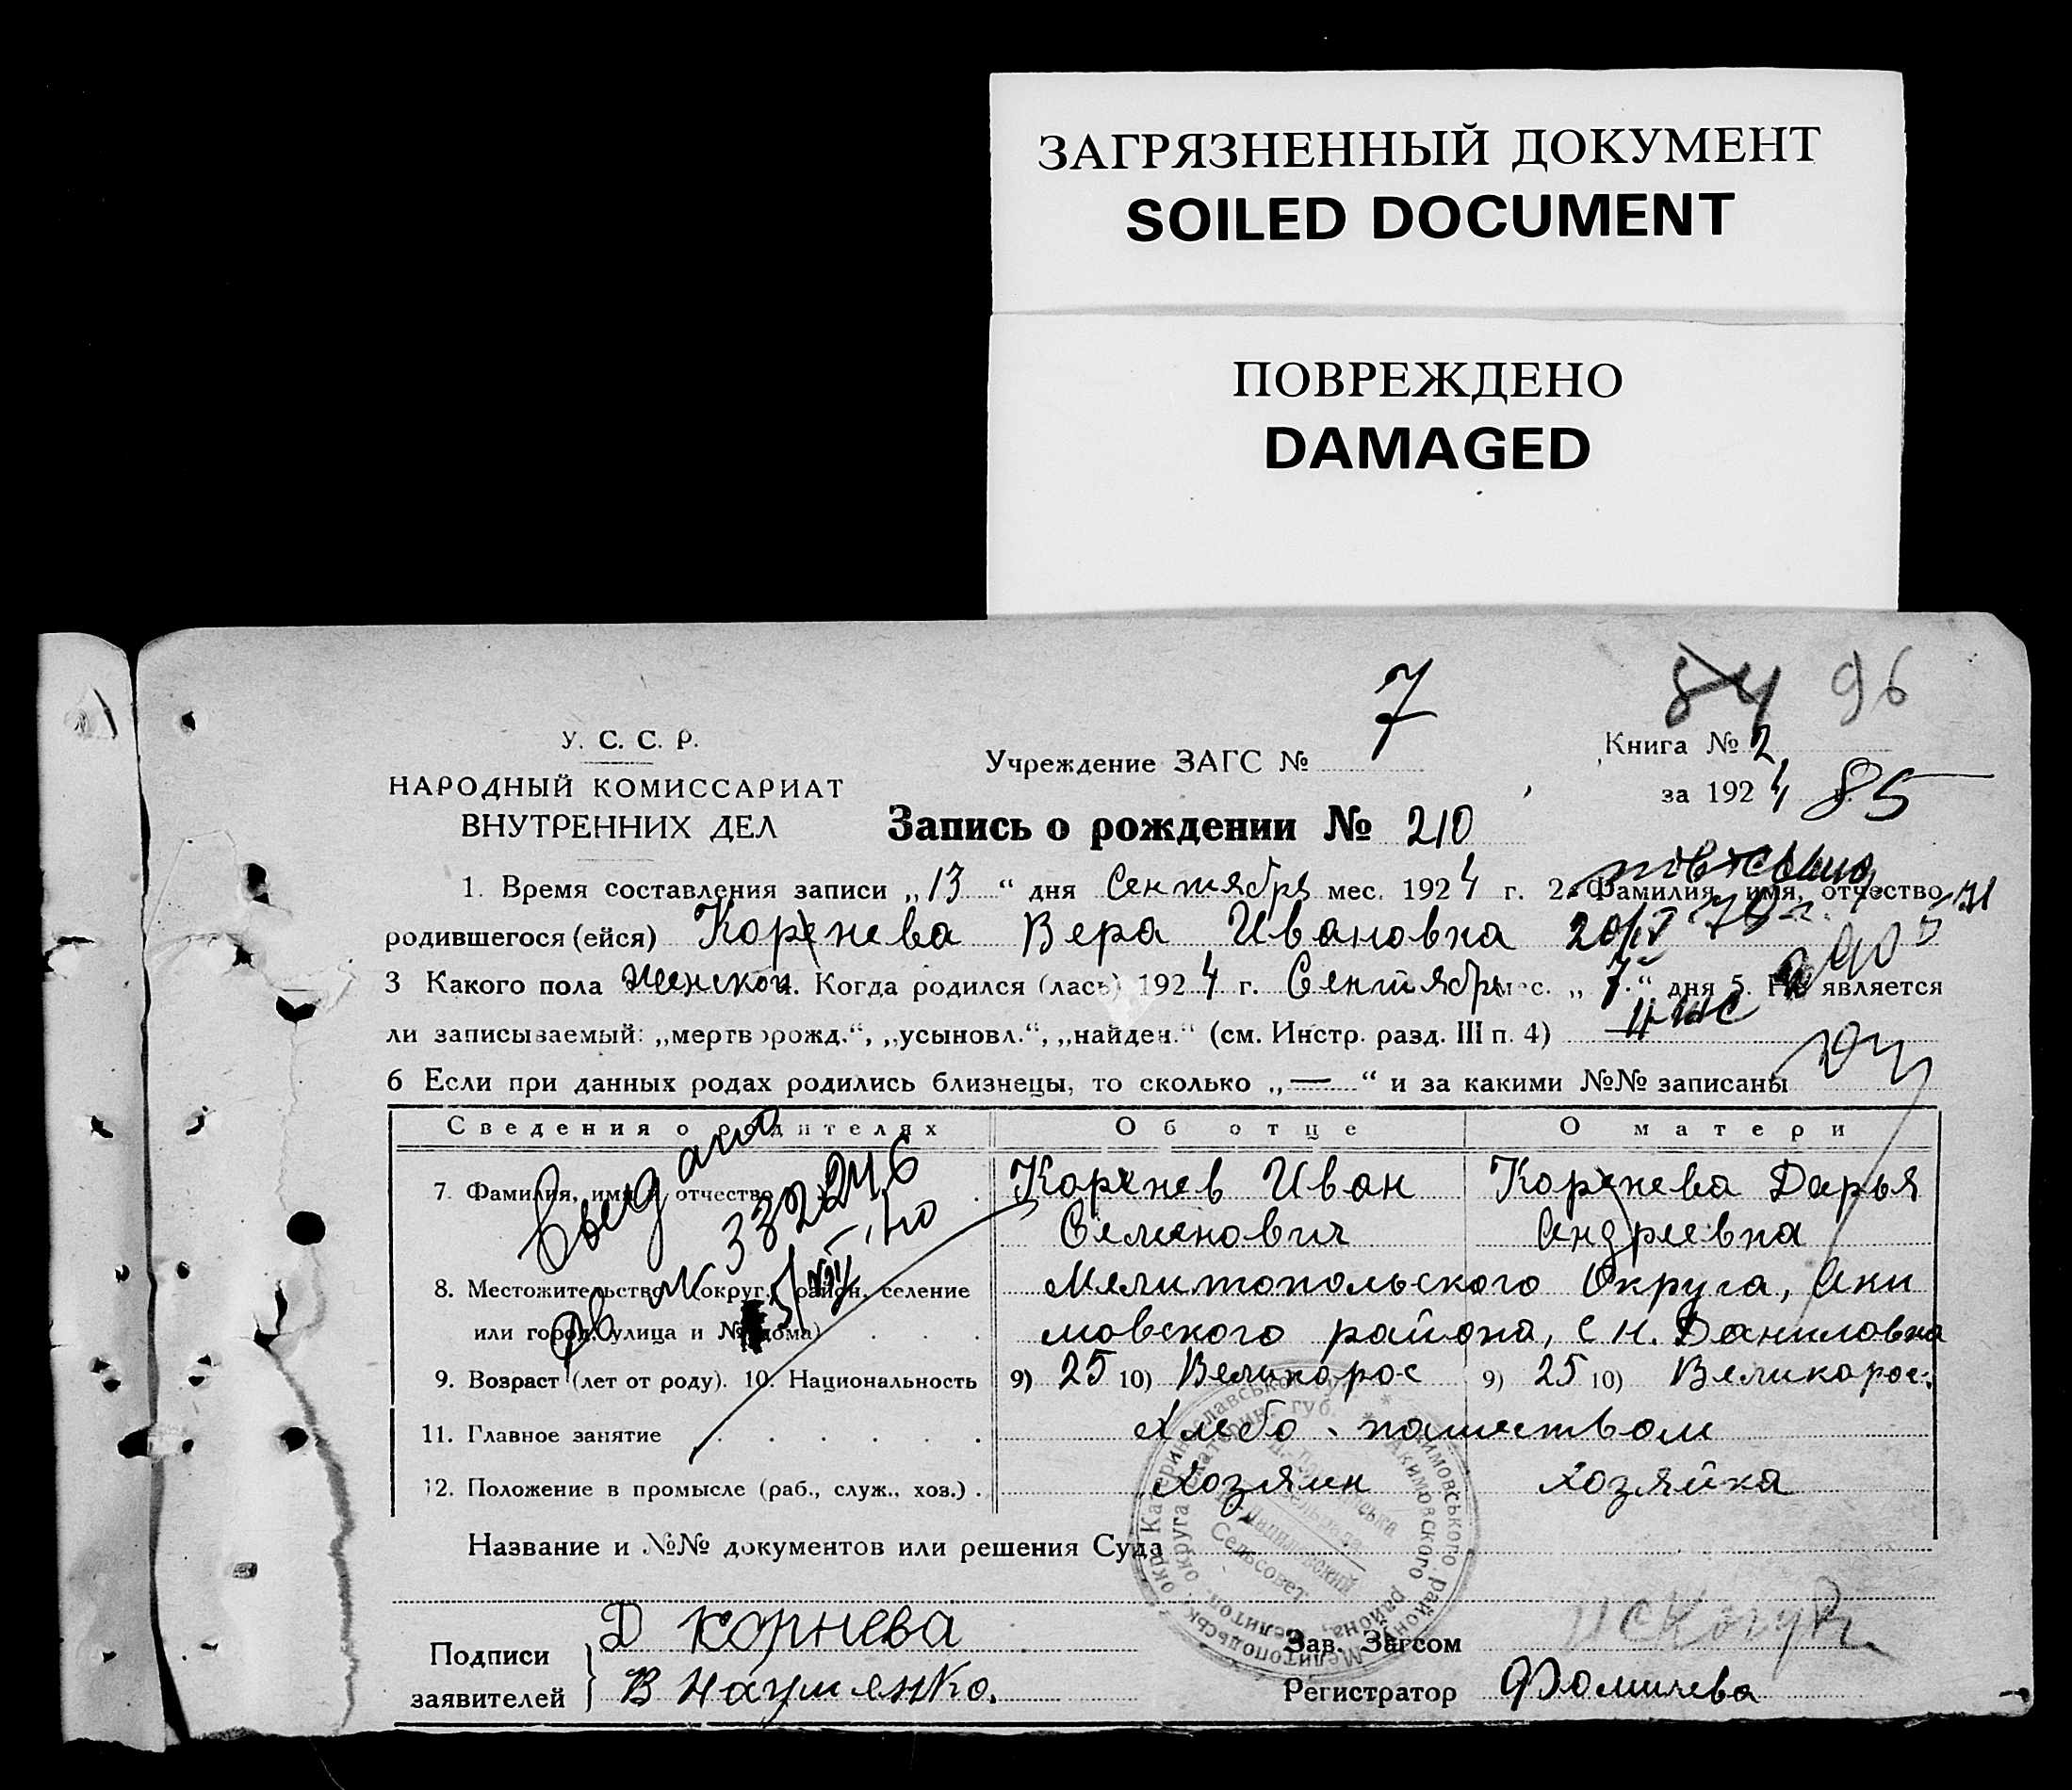 ЗАГРЯЗНЕННЫЙ ДОКУМЕНТ
SOILED DOCUMENT
ПОВРЕЖДЕНО
DAMAGED
84 96
У. С. С. Р.
НАРОДНЫЙ КОМИССАРИАТ
ВНУТРЕННИХ ДЕЛ
Учреждение ЗАГС № 7
Книга № 2
за 1924 г. 85
Запись о рождении № 210
1. Время составления записи „13" дня Сентября мес. 1924 г. 2. Фамилия, имя, отчество
родившегося (ейся) Коренева Вера Ивановна
3 Какого пола женской. Когда родился (лась) 1924 г. Сентября мес. „7." дня 5. Не является
ли записываемый: „мертворожд.", „усыновл.", „найден." (см. Инстр. разд. III п. 4)
6 Если при данных родах родились близнецы, то сколько „—" и за какими №№ записаны
Сведения о родителях Об отце О матери
7. Фамилия, имя и отчество Коренев Иван Коренева Дарья
Семенович Андреевна
8. Местожительство (округ, район, селение Мелитопольского Округа, Аки
или город, улица и № дома) мовского района, с Н. Даниловка
9. Возраст (лет от роду). 10. Национальность 9) 25 10) Великорос 9) 25 10) Великорос.
11. Главное занятие Хлебо-пашеством
12. Положение в промысле (раб., служ., хоз.) Хозяин Хозяйка
Выдано
332246
Название и №№ документов или решения Суда
Подписи заявителей
Д Корнева
В Науменко.
Зав. Загсом
Регистратор Фомичева
Сельсовет